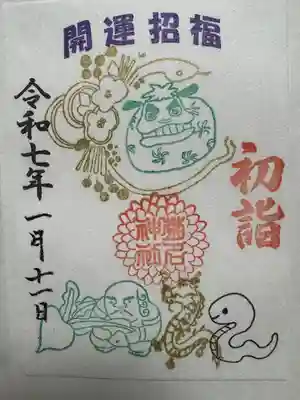 開運招福
初詣
令和七年一月十一日